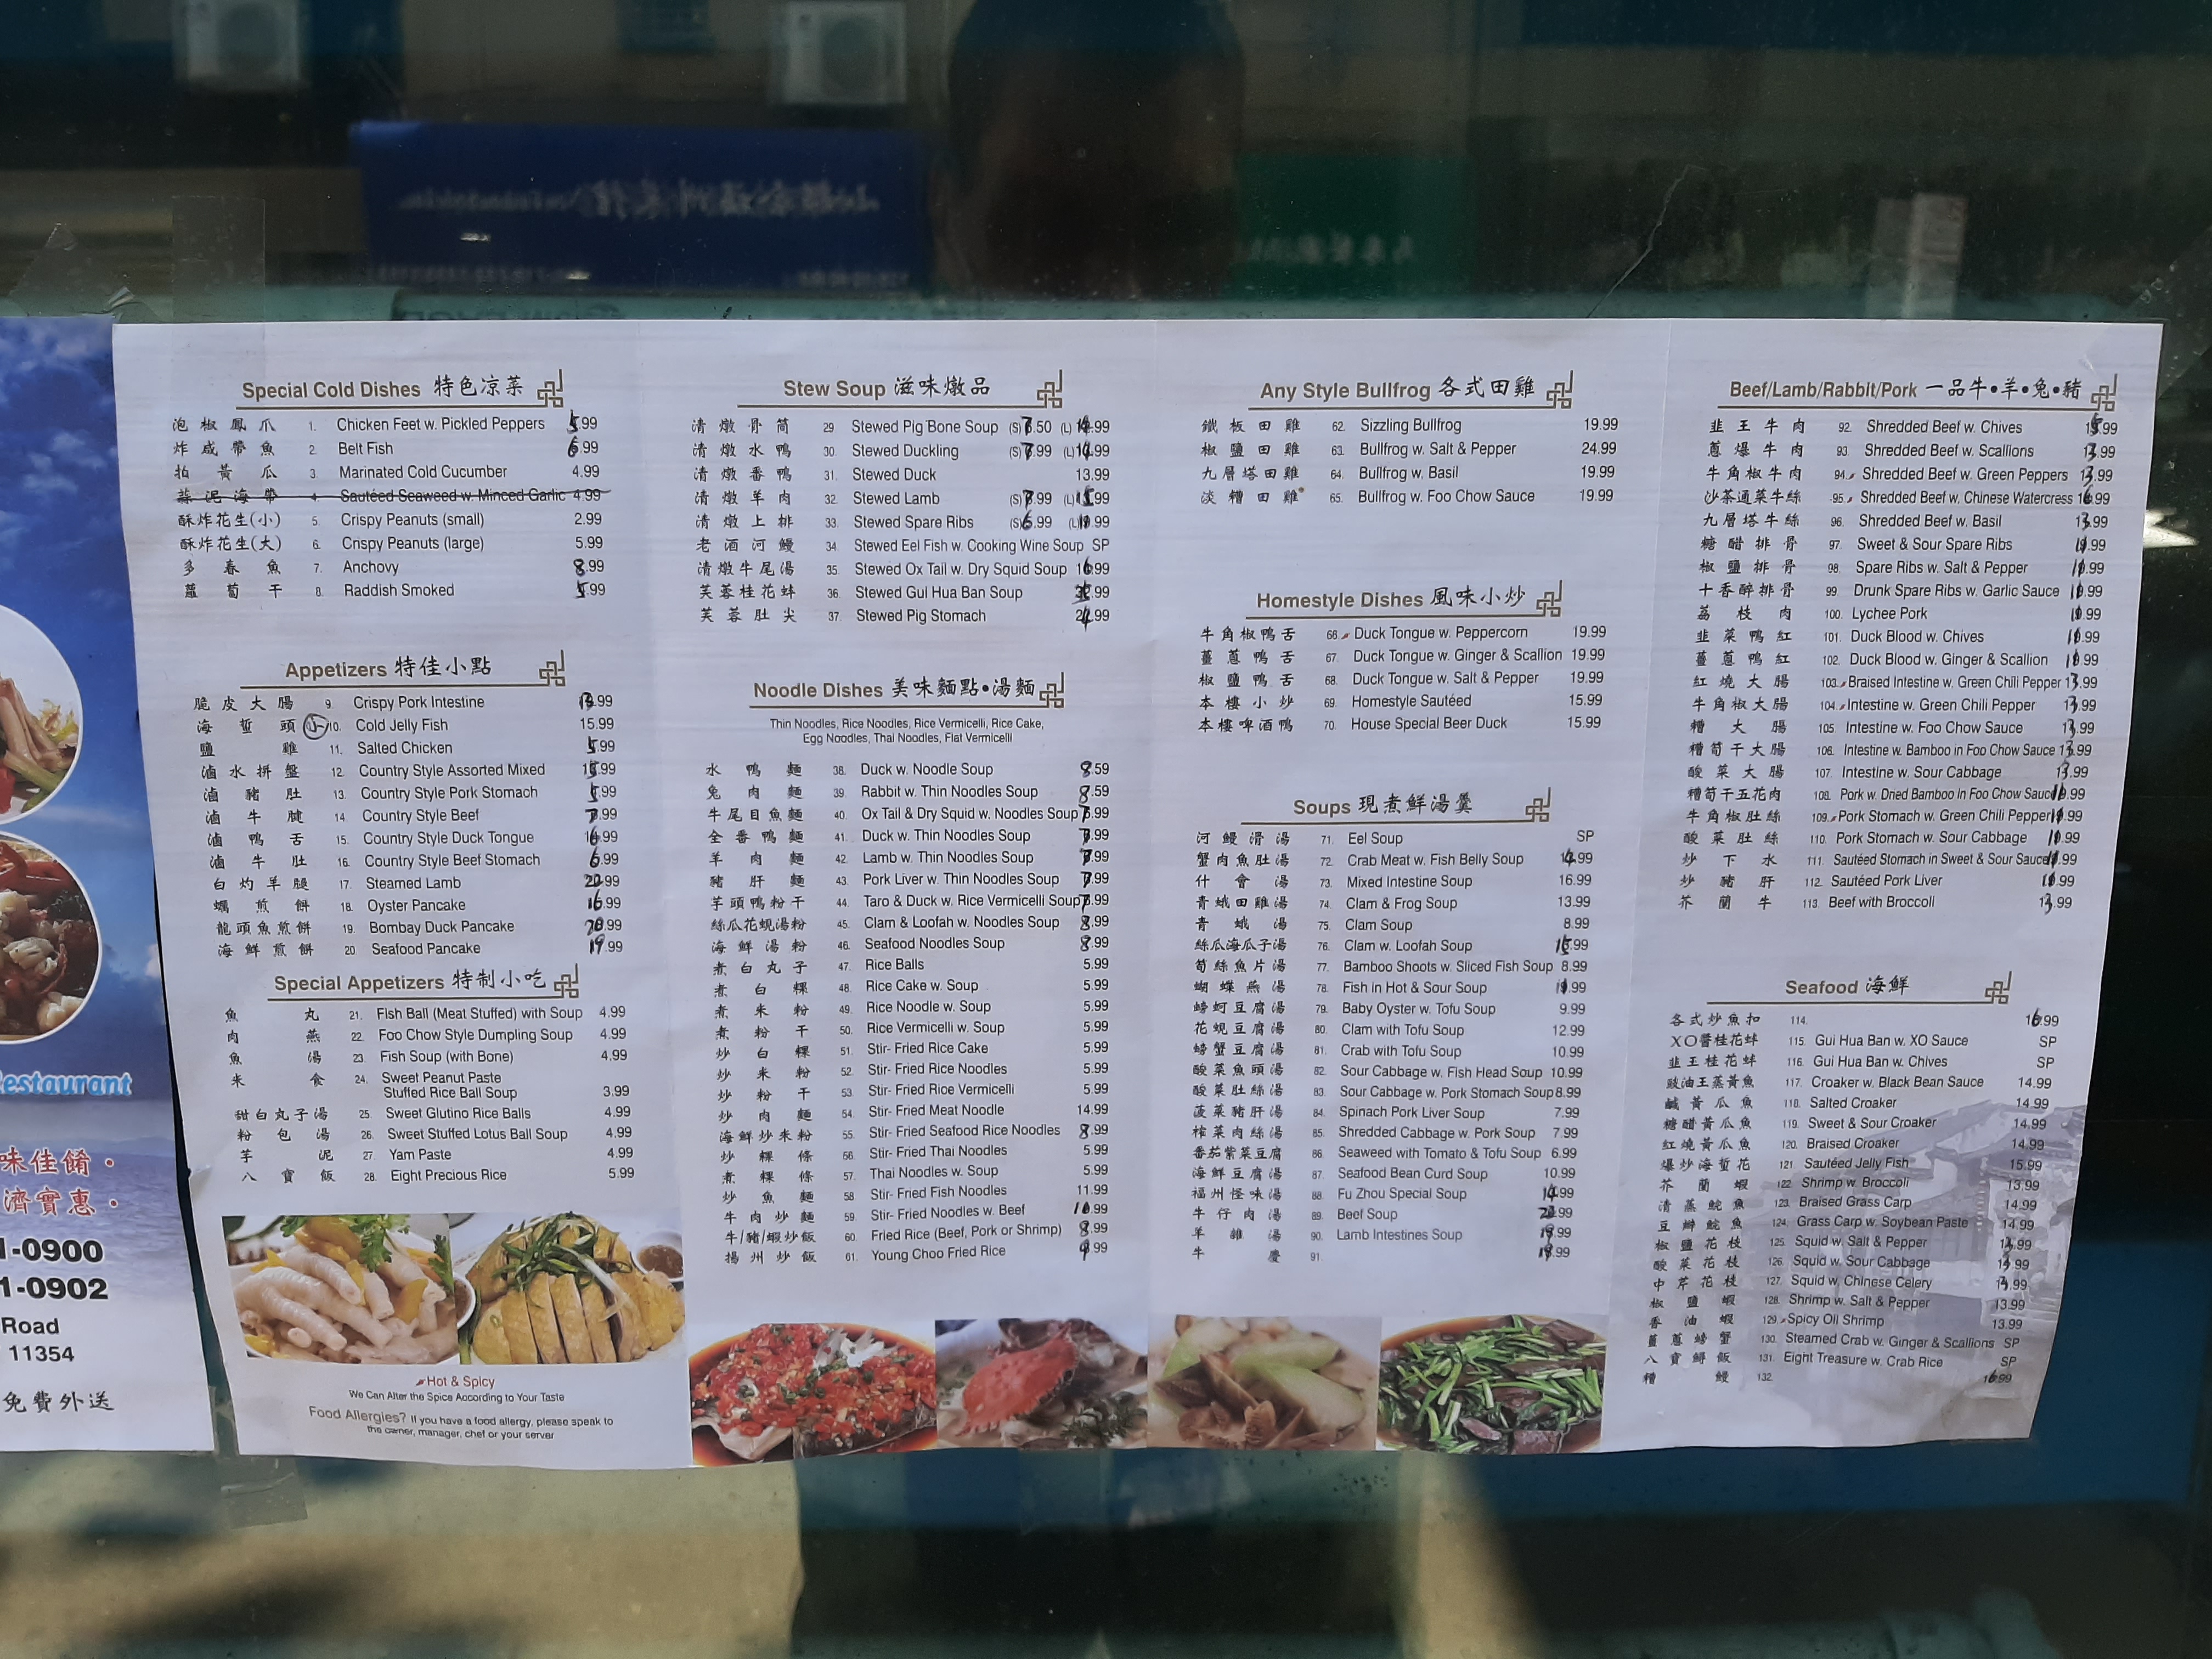 estaurant
味佳餚・
濟實惠・
1-0900
1-0902
Road
11354
免費外送
Special Cold Dishes 特色凉菜
泡椒鳳爪 1. Chicken Feet w. Pickled Peppers 5.99
炸咸帶魚 2. Belt Fish 6.99
拍黃瓜 3. Marinated Cold Cucumber 4.99
蒜泥海帶 4. Sautéed Seaweed w. Minced Garlic 4.99
酥炸花生(小) 5. Crispy Peanuts (small) 2.99
酥炸花生(大) 6. Crispy Peanuts (large) 5.99
多春魚 7. Anchovy 8.99
蘿蔔干 8. Raddish Smoked 5.99
Appetizers 特佳小點
脆皮大腸 9. Crispy Pork Intestine .99
海蜇頭 小 10. Cold Jelly Fish 15.99
鹽雞 11. Salted Chicken 5.99
滷水拼盤 12. Country Style Assorted Mixed .99
滷豬肚 13. Country Style Pork Stomach 5.99
滷牛腱 14. Country Style Beef 7.99
滷鴨舌 15. Country Style Duck Tongue 16.99
滷牛肚 16. Country Style Beef Stomach 6.99
白灼羊腿 17. Steamed Lamb 22.99
蠣煎餅 18. Oyster Pancake 16.99
龍頭魚煎餅 19. Bombay Duck Pancake 20.99
海鮮煎餅 20 Seafood Pancake 19.99
Special Appetizers 特制小吃
魚丸 21. Fish Ball (Meat Stuffed) with Soup 4.99
肉燕 22. Foo Chow Style Dumpling Soup 4.99
魚湯 23. Fish Soup (with Bone) 4.99
米食 24. Sweet Peanut Paste
Stuffed Rice Ball Soup 3.99
甜白丸子湯 25. Sweet Glutino Rice Balls 4.99
粉包湯 26. Sweet Stuffed Lotus Ball Soup 4.99
芋泥 27. Yam Paste 4.99
八寶飯 28. Eight Precious Rice 5.99
Hot & Spicy
We Can Alter the Spice According to Your Taste
Food Allergies? If you have a food allergy, please speak to
the owner, manager, chef or your server
Stew Soup 滋味燉品
清燉骨筒 29 Stewed Pig Bone Soup (S) 7.50 (L) 14.99
清燉水鴨 30. Stewed Duckling (S) 7.99 (L) 14.99
清燉番鴨 31. Stewed Duck 13.99
清燉羊肉 32. Stewed Lamb (S) 7.99 (L) 15.99
清燉上排 33. Stewed Spare Ribs (S) 6.99 (L) .99
老酒河鰻 34. Stewed Eel Fish w. Cooking Wine Soup SP
清燉牛尾湯 35. Stewed Ox Tail w. Dry Squid Soup 16.99
芙蓉桂花蚌 36. Stewed Gui Hua Ban Soup .99
芙蓉肚尖 37. Stewed Pig Stomach 24.99
Noodle Dishes 美味麵點•湯麵
Thin Noodles, Rice Noodles, Rice Vermicelli, Rice Cake,
Egg Noodles, Thai Noodles, Flat Vermicelli
水鴨麵 38. Duck w. Noodle Soup 8.59
兔肉麵 39. Rabbit w. Thin Noodles Soup 8.59
牛尾目魚麵 40. Ox Tail & Dry Squid w. Noodles Soup .99
全番鴨麵 41. Duck w. Thin Noodles Soup 7.99
羊肉麵 42. Lamb w. Thin Noodles Soup 7.99
豬肝麵 43. Pork Liver w. Thin Noodles Soup 7.99
芋頭鴨粉干 44. Taro & Duck w. Rice Vermicelli Soup .99
絲瓜花蜆湯粉 45. Clam & Loofah w. Noodles Soup 8.99
海鮮湯粉 46. Seafood Noodles Soup 8.99
煮白丸子 47. Rice Balls 5.99
煮白粿 48. Rice Cake w. Soup 5.99
煮米粉 49. Rice Noodle w. Soup 5.99
煮粉干 50. Rice Vermicelli w. Soup 5.99
炒白粿 51. Stir- Fried Rice Cake 5.99
炒米粉 52. Stir- Fried Rice Noodles 5.99
炒粉干 53. Stir- Fried Rice Vermicelli 5.99
炒肉麵 54. Stir- Fried Meat Noodle 14.99
海鮮炒米粉 55. Stir- Fried Seafood Rice Noodles 8.99
炒粿條 56. Stir- Fried Thai Noodles 5.99
煮粿條 57. Thai Noodles w. Soup 5.99
炒魚麵 58 Stir- Fried Fish Noodles 11.99
牛肉炒麵 59. Stir- Fried Noodles w. Beef 10.99
牛/豬/蝦炒飯 60. Fried Rice (Beef, Pork or Shrimp) 8.99
揚州炒飯 61. Young Choo Fried Rice 9.99
Any Style Bullfrog 各式田雞
鐵板田雞 62. Sizzling Bullfrog 19.99
椒鹽田雞 63. Bullfrog w. Salt & Pepper 24.99
九層塔田雞 64. Bullfrog w. Basil 19.99
淡糟田雞 65. Bullfrog w. Foo Chow Sauce 19.99
Homestyle Dishes 風味小炒
牛角椒鴨舌 66. Duck Tongue w. Peppercorn 19.99
薑蔥鴨舌 67. Duck Tongue w. Ginger & Scallion 19.99
椒鹽鴨舌 68. Duck Tongue w. Salt & Pepper 19.99
本樓小炒 69. Homestyle Sautéed 15.99
本樓啤酒鴨 70. House Special Beer Duck 15.99
Soups 現煮鮮湯羹
河鰻滑湯 71. Eel Soup SP
蟹肉魚肚湯 72. Crab Meat w. Fish Belly Soup 14.99
什會湯 73. Mixed Intestine Soup 16.99
青蛾田雞湯 74. Clam & Frog Soup 13.99
青蛾湯 75. Clam Soup 8.99
絲瓜海瓜子湯 76. Clam w. Loofah Soup 15.99
筍絲魚片湯 77. Bamboo Shoots w. Sliced Fish Soup 8.99
蝴蝶燕湯 78. Fish in Hot & Sour Soup .99
螃蚵豆腐湯 79. Baby Oyster w. Tofu Soup 9.99
花蜆豆腐湯 80. Clam with Tofu Soup 12.99
螃蟹豆腐湯 81. Crab with Tofu Soup 10.99
酸菜魚頭湯 82. Sour Cabbage w. Fish Head Soup 10.99
酸菜肚絲湯 83. Sour Cabbage w. Pork Stomach Soup 8.99
菠菜豬肝湯 84. Spinach Pork Liver Soup 7.99
榨菜肉絲湯 85. Shredded Cabbage w. Pork Soup 7.99
番茄紫菜豆腐 86. Seaweed with Tomato & Tofu Soup 6.99
海鮮豆腐湯 87. Seafood Bean Curd Soup 10.99
福州怪味湯 88. Fu Zhou Special Soup 14.99
牛仔肉湯 89. Beef Soup 22.99
羊雜湯 90. Lamb Intestines Soup .99
牛慶 91. .99
Beef/Lamb/Rabbit/Pork 一品牛•羊•兔•豬
韭王牛肉 92. Shredded Beef w. Chives 15.99
蔥爆牛肉 93. Shredded Beef w. Scallions 13.99
牛角椒牛肉 94. Shredded Beef w. Green Peppers 13.99
沙茶通菜牛絲 95. Shredded Beef w. Chinese Watercress 16.99
九層塔牛絲 96. Shredded Beef w. Basil 13.99
糖醋排骨 97. Sweet & Sour Spare Ribs .99
椒鹽排骨 98. Spare Ribs w. Salt & Pepper .99
十香醉排骨 99. Drunk Spare Ribs w. Garlic Sauce .99
荔枝肉 100. Lychee Pork .99
韭菜鴨紅 101. Duck Blood w. Chives .99
薑蔥鴨紅 102. Duck Blood w. Ginger & Scallion .99
紅燒大腸 103. Braised Intestine w. Green Chili Pepper 13.99
牛角椒大腸 104. Intestine w. Green Chili Pepper 13.99
糟大腸 105 Intestine w. Foo Chow Sauce 13.99
糟筍干大腸 106. Intestine w. Bamboo in Foo Chow Sauce 13.99
酸菜大腸 107. Intestine w. Sour Cabbage 13.99
糟筍干五花肉 108. Pork w. Dried Bamboo in Foo Chow Sauce .99
牛角椒肚絲 109. Pork Stomach w. Green Chili Pepper .99
酸菜肚絲 110. Pork Stomach w. Sour Cabbage .99
炒下水 111. Sautéed Stomach in Sweet & Sour Sauce .99
炒豬肝 112. Sautéed Pork Liver .99
芥蘭牛 113. Beef with Broccoli 13.99
Seafood 海鮮
各式炒魚扣 114. 16.99
XO醬桂花蚌 115. Gui Hua Ban w. XO Sauce SP
韭王桂花蚌 116. Gui Hua Ban w. Chives SP
豉油王蒸黃魚 117. Croaker w. Black Bean Sauce 14.99
鹹黃瓜魚 118. Salted Croaker 14.99
糖醋黃瓜魚 119. Sweet & Sour Croaker 14.99
紅燒黃瓜魚 120. Braised Croaker 14.99
爆炒海蜇花 121. Sautéed Jelly Fish 15.99
芥蘭蝦 122. Shrimp w. Broccoli 13.99
清蒸鯇魚 123. Braised Grass Carp 14.99
豆瓣鯇魚 124. Grass Carp w. Soybean Paste 14.99
椒鹽花枝 125. Squid w. Salt & Pepper 13.99
酸菜花枝 126. Squid w. Sour Cabbage 13.99
中芹花枝 127. Squid w. Chinese Celery 13.99
椒鹽蝦 128. Shrimp w. Salt & Pepper 13.99
香油蝦 129. Spicy Oil Shrimp 13.99
薑蔥螃蟹 130. Steamed Crab w. Ginger & Scallions SP
八寶蟳飯 131. Eight Treasure w. Crab Rice SP
糟鰻 132. 16.99